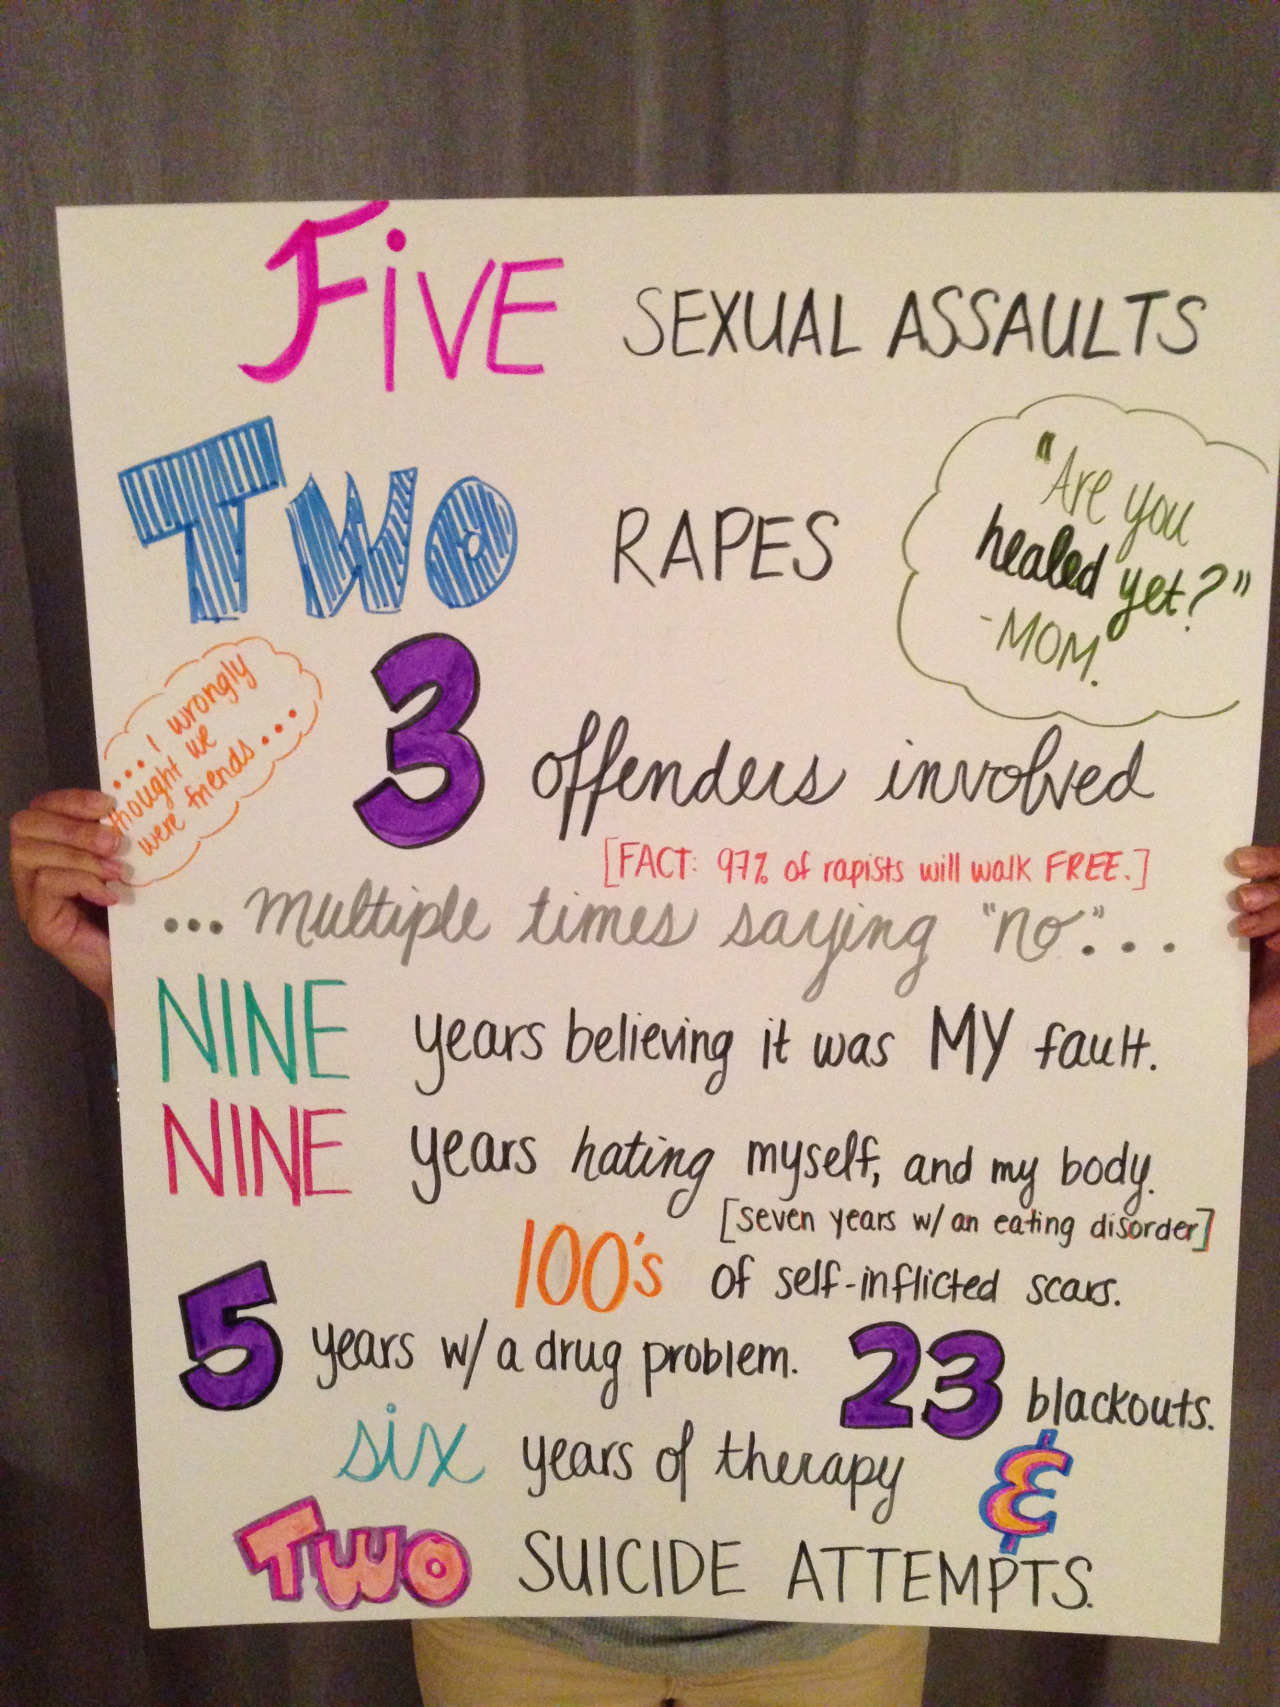 FIVE SEXUAL ASSAULTS
TWO RAPES
"Are you
healed yet?"
-MOM.
...I wrongly
thought we
were friends...
3 offenders involved
[FACT: 97% of rapists will walk FREE.]
... multiple times saying "no"...
NINE years believing it was MY fault.
NINE years hating myself, and my body.
[seven years w/ an eating disorder]
100's of self-inflicted scars.
5 years w/ a drug problem.
23 blackouts.
six years of therapy &
TWO SUICIDE ATTEMPTS.